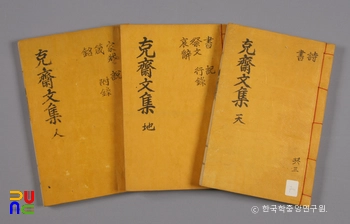 克齋文集 天
詩
書
共三
克齋文集 地
書 記
祭文 行錄
哀辭
克齋文集 人
附錄
한국학중앙연구원